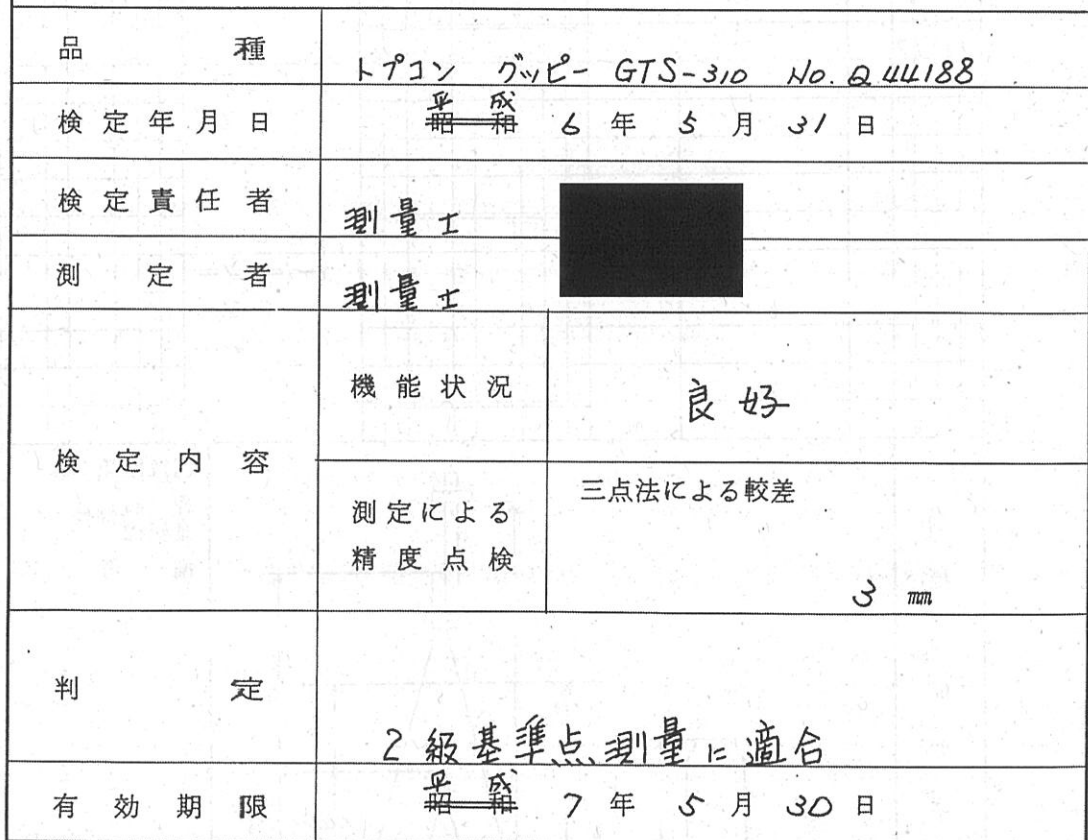 品種 トプコン グッピー GTS-310 No. Q44188
検定年月日 平成 昭和 6年5月31日
検定責任者 測量士
測定者 測量士
検定内容 機能状況 良好
測定による精度点検 三点法による較差
3 mm
判定 2級基準点測量に適合
有効期限 平成 昭和 7年5月30日